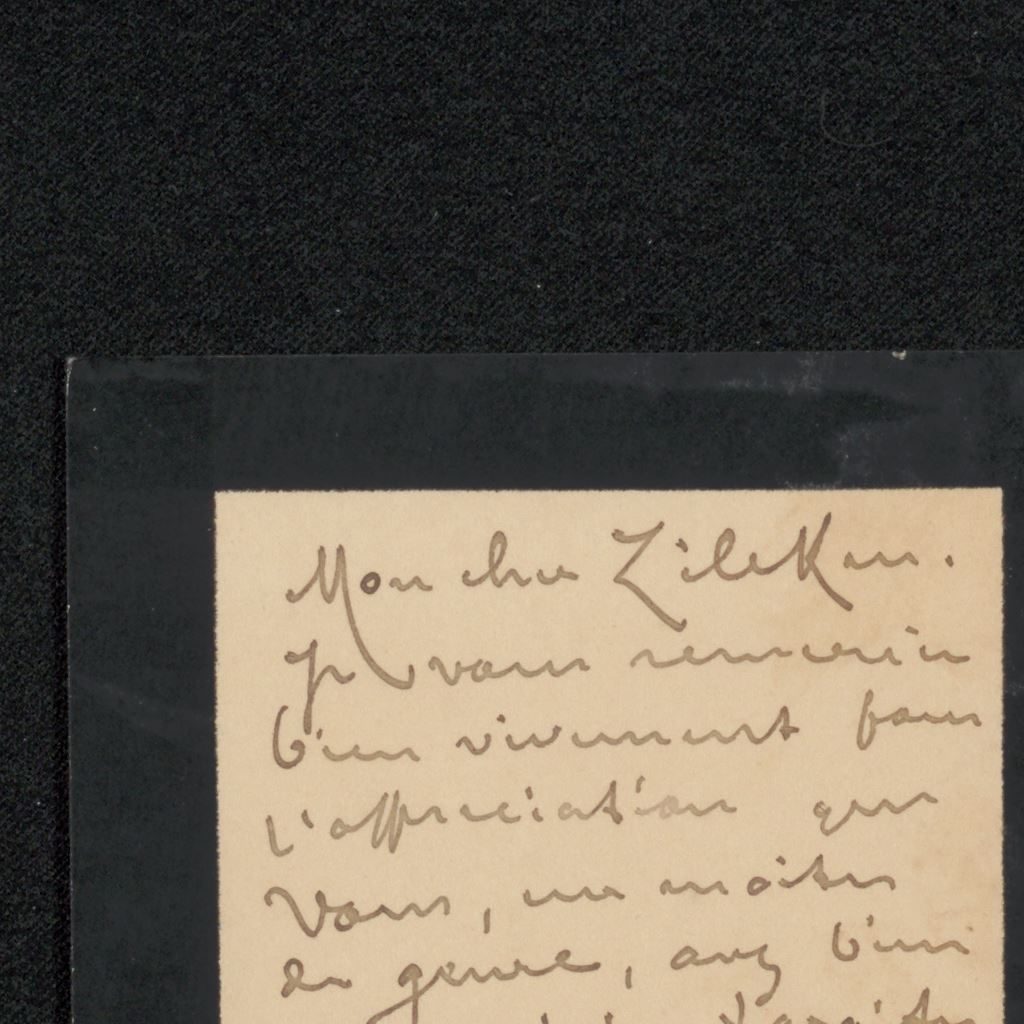 Mon cher Zilcken.
Je vous remercie
bien vivement pour
l'appreciation que
vous, un maitre
du genre, avez bien